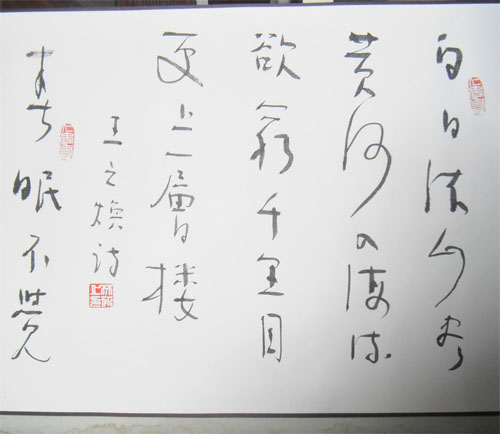 白日依山尽
黄河入海流
欲穷千里目
更上一層楼
王之焕诗
春眠不觉